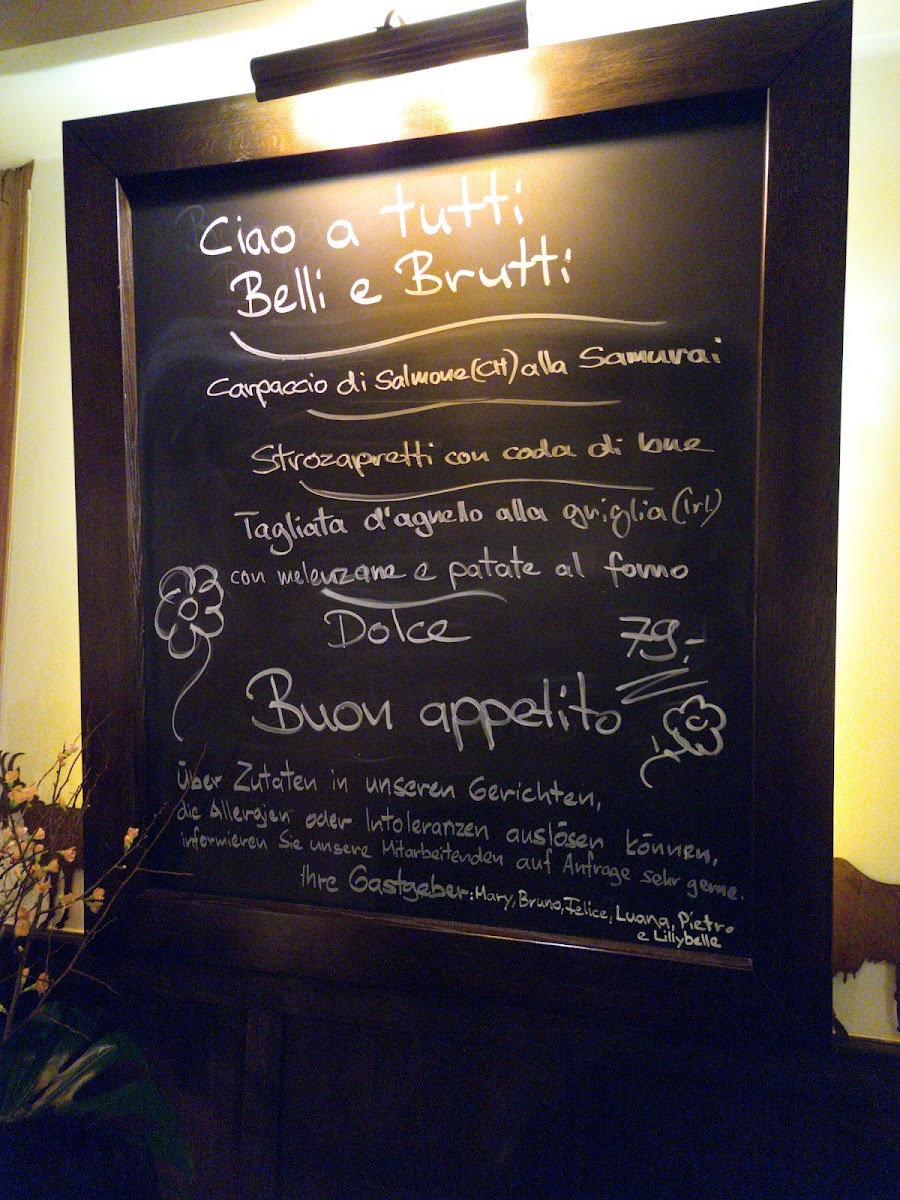 Ciao a tutti
Belli e Brutti
Carpaccio di Salmone (CH) alla Samurai
Strozapretti con coda di bue
Tagliata d'agnello alla griglia (Irl)
con melenzane e patate al forno
Dolce
79.-
Buon appetito
Über Zutaten in unseren Gerichten,
die Allergien oder Intoleranzen auslösen können,
informieren Sie unsere Mitarbeitenden auf Anfrage sehr gerne.
Ihre Gastgeber: Mary, Bruno, Felice, Luana, Pietro
e Lillybelle